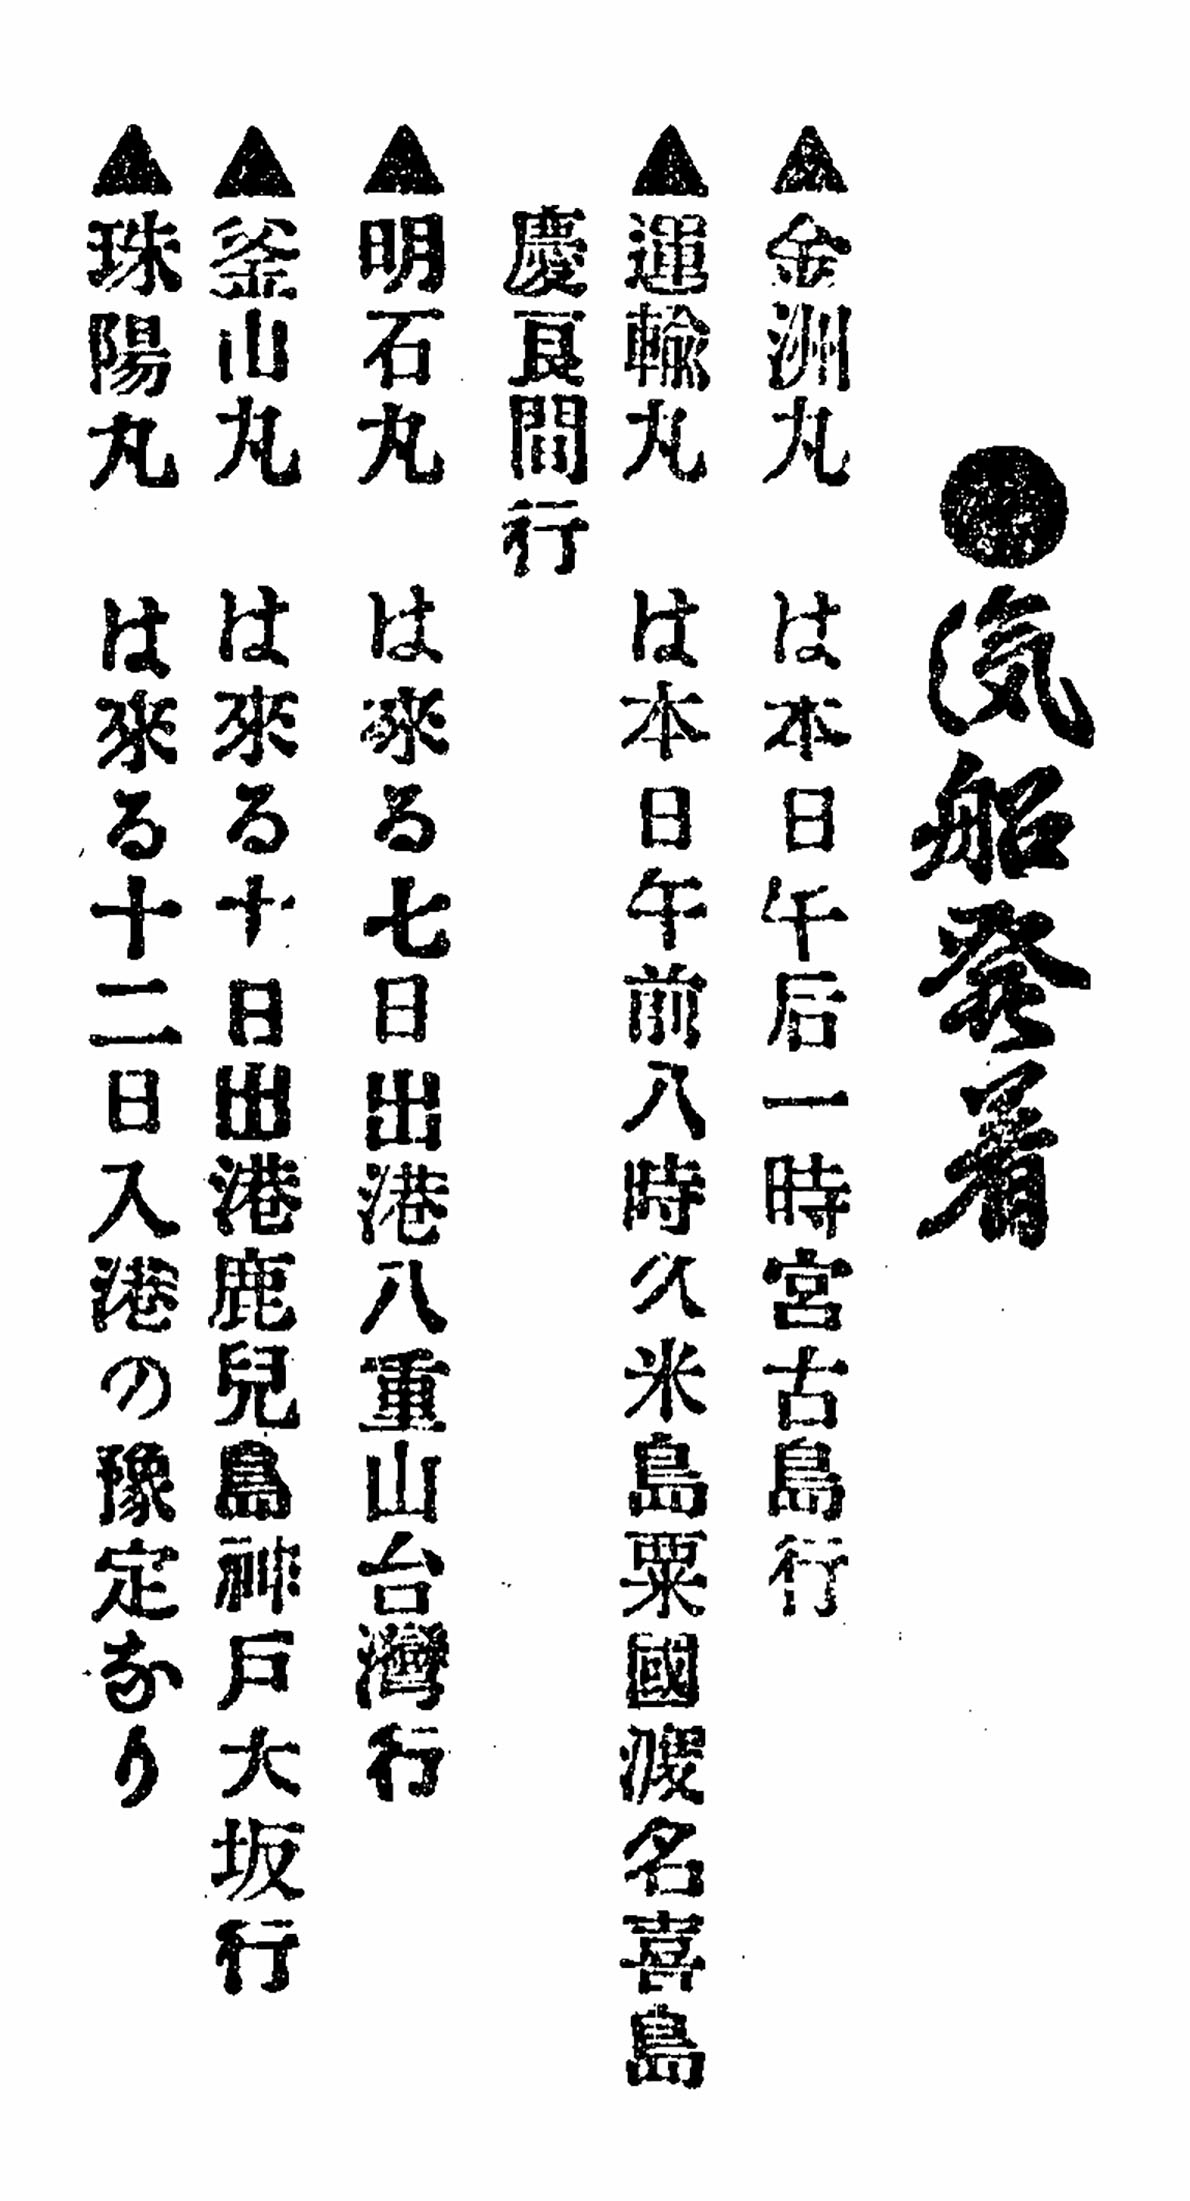 ●汽船発着
▲金洲丸 は本日午后一時宮古島行
▲運輸丸 は本日午前八時久米島粟國渡名喜島
慶良間行
▲明石丸 は來る七日出港八重山台灣行
▲釜山丸 は來る十日出港鹿兒島神戸大坂行
▲珠陽丸 は來る十二日入港の豫定なり